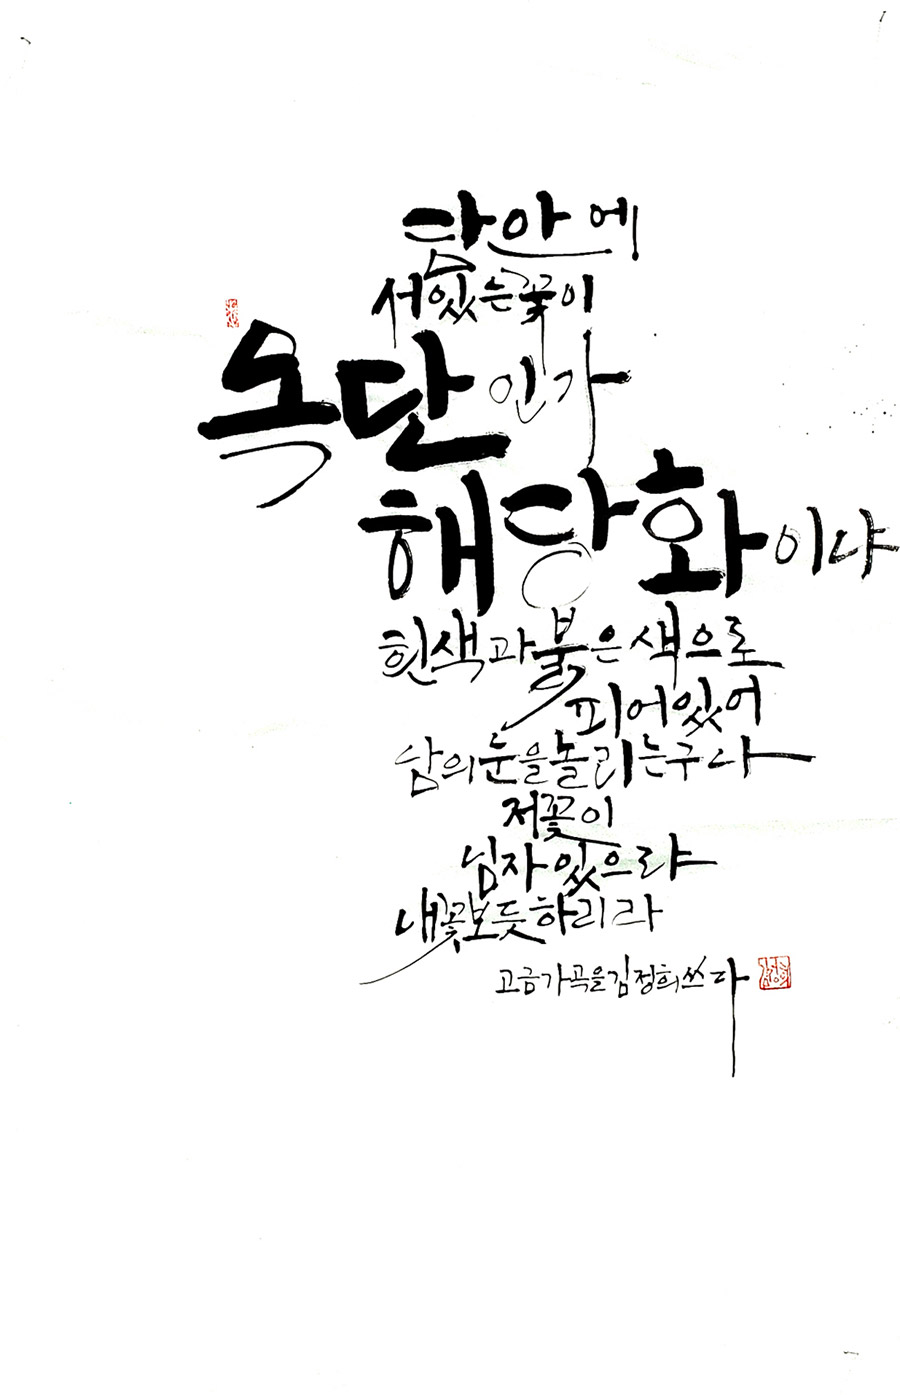 담안에
서있는꽃이
목단인가
해당화이냐
흰색과붉은색으로
피어있어
남의눈을놀리는구나
저꽃이
님자있으랴
내꽃보듯하리라
고금가곡을김정희쓰다